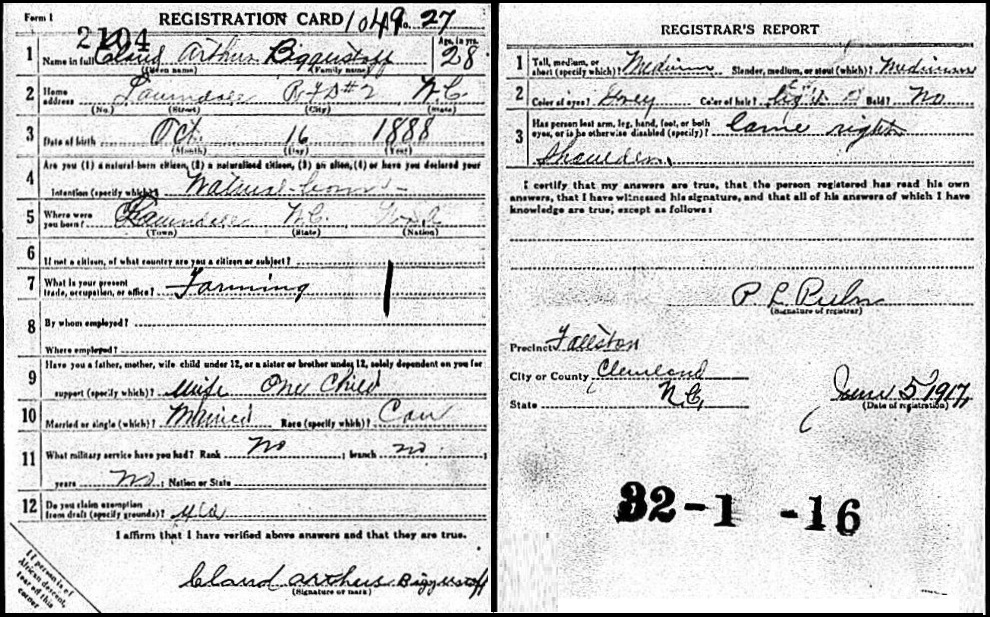 Form 1 REGISTRATION CARD 1049 No. 27
2104
1 Name in full Claud Arthur Biggerstaff Age, in yrs. 28
(Given name) (Family name)
2 Home address Lawndale RFD #2 N.C.
(No.) (Street) (City) (State)
3 Date of birth Oct 16 1888
(Month) (Day) (Year)
Are you (1) a natural-born citizen, (2) a naturalized citizen, (3) an alien, (4) or have you declared your
4 intention (specify which)? Natural-born
5 Where were you born? Lawndale N.C.
(Town) (State) (Nation)
6 If not a citizen, of what country are you a citizen or subject?
7 What is your present trade, occupation, or office? Farming
8 By whom employed?
Where employed?
9 Have you a father, mother, wife child under 12, or a sister or brother under 12, solely dependent on you for
support (specify which)? Wife One Child
10 Married or single (which)? Married Race (specify which)? Cau
11 What military service have you had? Rank No ; branch no ;
years No ; Nation or State
12 Do you claim exemption from draft (specify grounds)?
I affirm that I have verified above answers and that they are true.
Claud Arthur Biggerstaff
(Signature or mark)
If person is of
African descent,
tear off this
corner
REGISTRAR'S REPORT
1 Tall, medium, or short (specify which)? Medium Slender, medium, or stout (which)? Medium
2 Color of eyes? Grey Color of hair? Light Bald? No
3 Has person lost arm, leg, hand, foot, or both
eyes, or is he otherwise disabled (specify)? lame right
Shoulder.
I certify that my answers are true, that the person registered has read his own
answers, that I have witnessed his signature, and that all of his answers of which I have
knowledge are true, except as follows:
P L
(Signature of registrar)
Precinct Fallston
City or County Cleveland
State N.C.
June 5 1917
(Date of registration)
32-1 -16